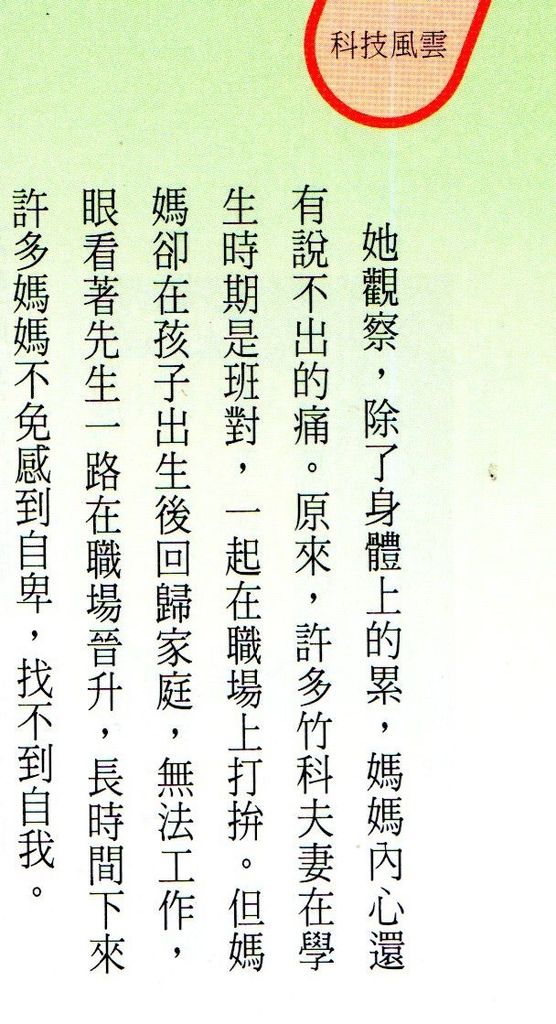 科技風雲
她觀察，除了身體上的累，媽媽內心還
有說不出的痛。原來，許多竹科夫妻在學
生時期是班對，一起在職場上打拚。但媽
媽卻在孩子出生後回歸家庭，無法工作，
眼看著先生一路在職場晉升，長時間下來
許多媽媽不免感到自卑，找不到自我。